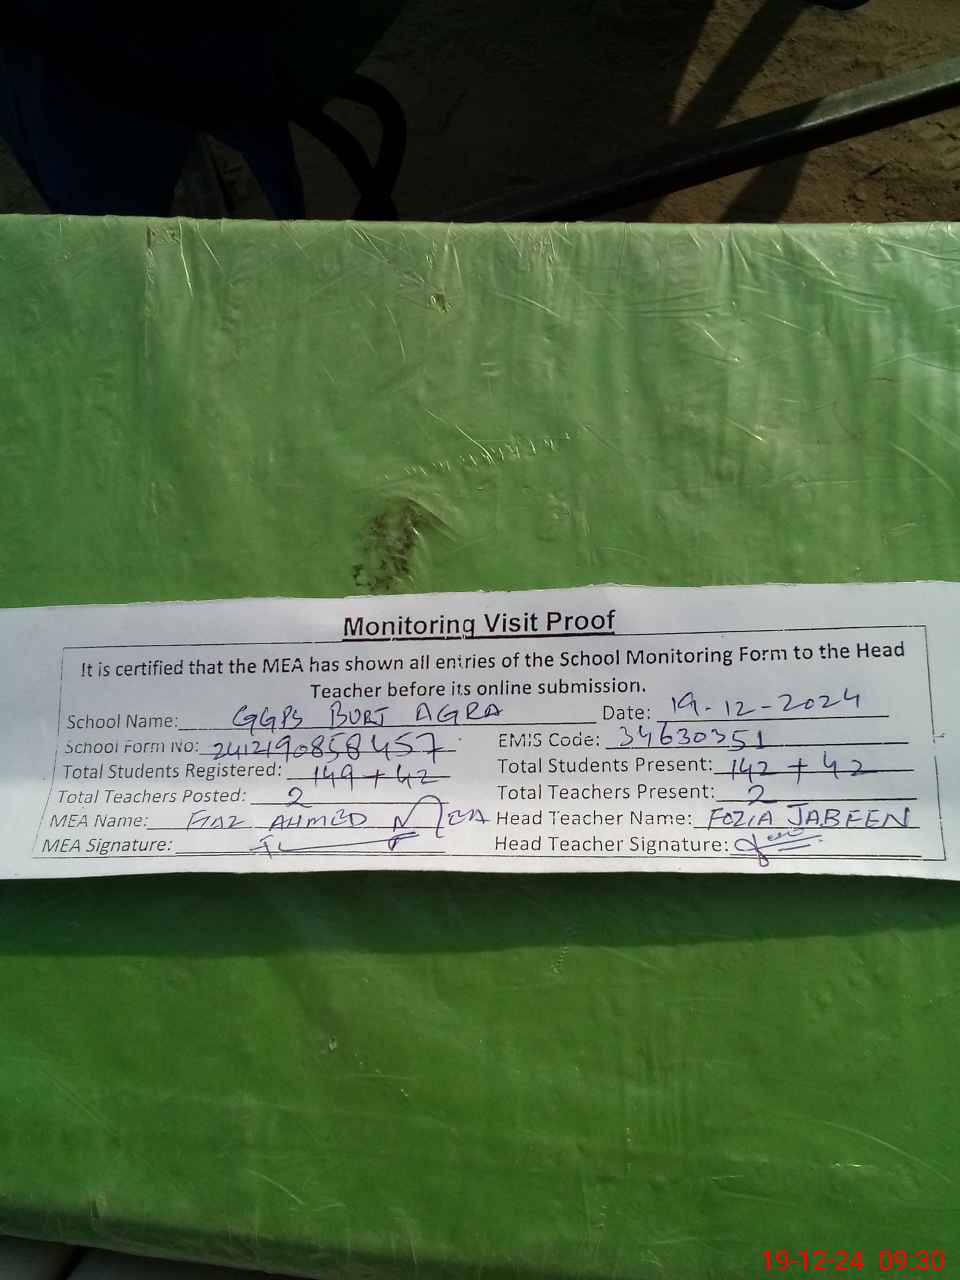 Monitoring Visit Proof
It is certified that the MEA has shown all entries of the School Monitoring Form to the Head
Teacher before its online submission.
School Name: GGPS BURJ AGRA Date: 19-12-2024
School Form No: 2412190858457 EMIS Code: 34630351
Total Students Registered: 149 + 42 Total Students Present: 142 + 42
Total Teachers Posted: 2 Total Teachers Present: 2
MEA Name: FIAZ AHMED MEA Head Teacher Name: FOZIA JABEEN
MEA Signature: Head Teacher Signature:
19-12-24 09:30